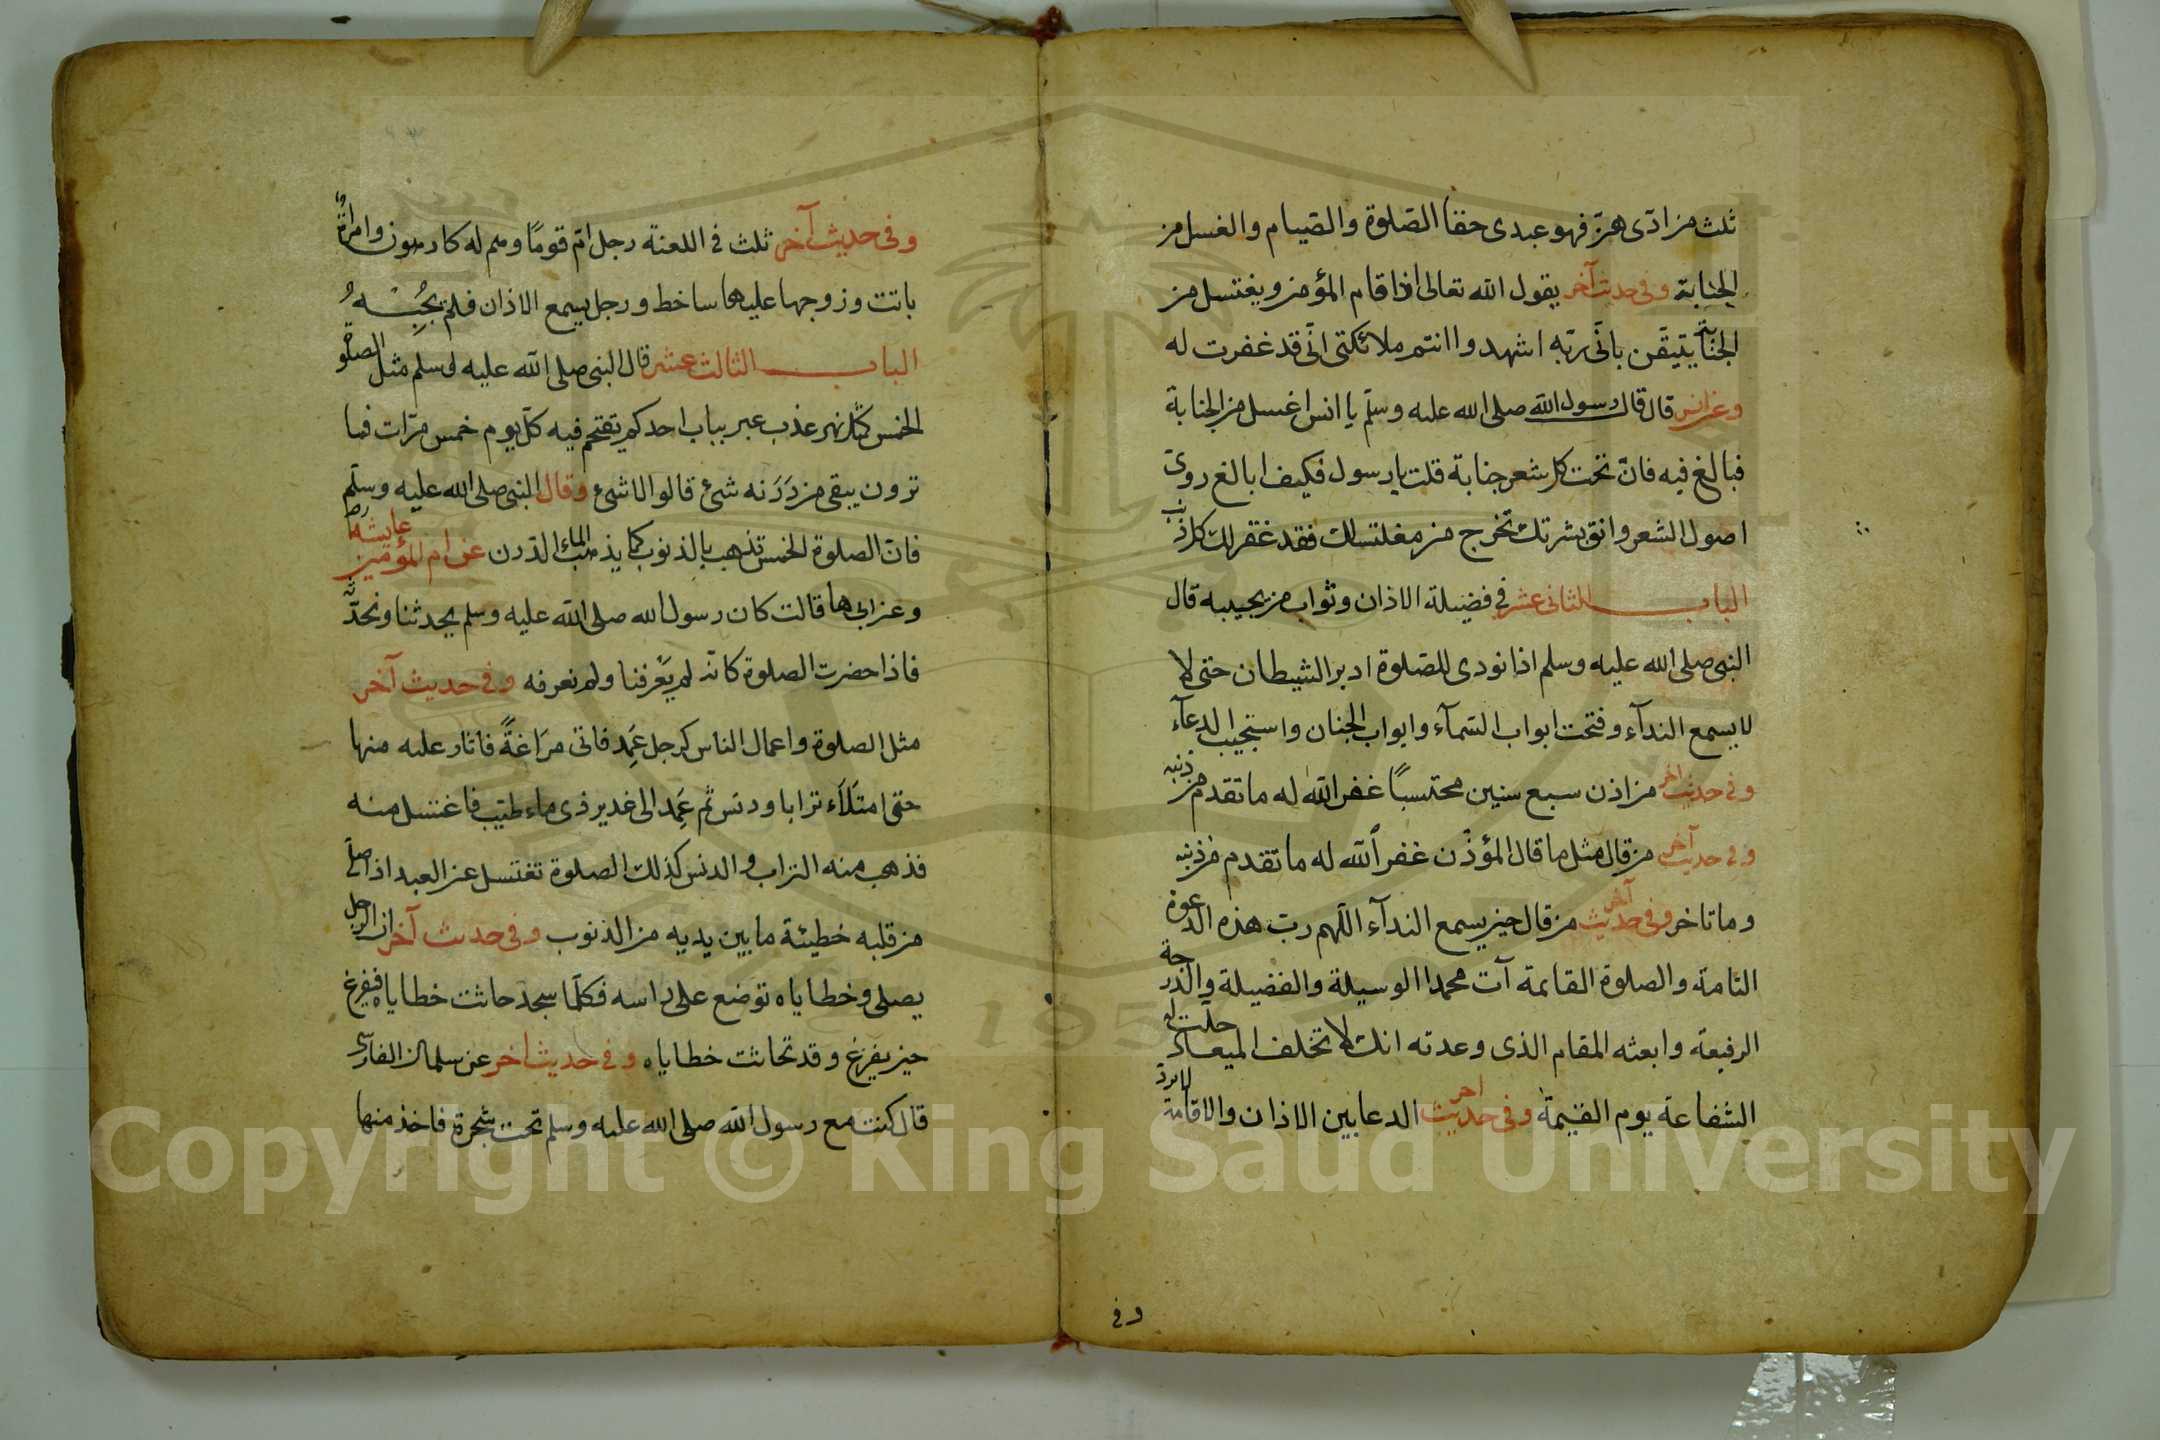 ثلث من ادّى هنّ فهو عبدى حقا الصّلوة والصّيام والغسل من
الجنابة وفى حديث آخر يقول الله تعالى اذا قام المؤمن ويغتسل من
الجنابة يتيقّن بانّى ربّه اشهدوا انتم ملائكتى انّى قد غفرت له
وعن انس قال قال رسول الله صلى الله عليه وسلّم يا انس اغسل من الجنابة
فبالغ فيه فانّ تحت كل شعر جنابة قلت يا رسول فكيف ابالغ روىّ
اصول الشعر وانق بشرتك تخرج من مغتسلك فقد غفر لك كل ذنب
الباب الثانى عشر فى فضيلة الاذان وثواب من يجيبه قال
النبى صلى الله عليه وسلم اذا نودى للصّلوة ادبر الشيطان حتى لا
لا يسمع الندآء وفتحت ابواب السّمآء وابواب الجنان واستجيب الدعآء
وفى حديث اخر من اذن سبع سنين محتسبًا غفر الله له ما تقدم من ذنبه
وفى حديث آخر من قال مثل ما قال المؤذّن غفر الله له ما تقدم من ذنبه
وما تاخر وفى حديث آخر من قال حين يسمع الندآء اللّهم رب هذه الدعوة
التامة والصلوة القائمة آت محمدا الوسيلة والفضيلة والدرجة
الرفيعة وابعثه المقام الذى وعدته انك لا تخلف الميعاد حلّت له
الشفاعة يوم القيمة وفى حديث اخر الدعا بين الاذان والاقامة لا يردّ
وفى
وفى حديث آخر ثلث فى اللعنة رجل امّ قومًا وهم له كارهون وامراةٌ
باتت وزوجها عليها ساخط ورجل يسمع الاذان فلم يُجِبْهُ
الباب الثالث عشر قال النبى صلى الله عليه وسلم مثل الصلوة
الخمس كمثل نهر عذب عبر بباب احدكم يقتحم فيه كلّ يوم خمس مرّات فما
ترون يبقى من دَرَنه شئ قالوا لا شئ وقال النبى صلى الله عليه وسلّم
فانّ الصلوة الخمس تذهب بالذنوب كما يذهب الماء الدّرن عن ام المؤمنين عايشة رضـ
وعن ابيها قالت كان رسول الله صلى الله عليه وسلم يحدثنا ونحدّثه
فاذا حضرت الصلوة كانّه لم يَعْرفنا ولم نعرفه وفى حديث آخر
مثل الصلوة واعمال الناس كرجل عَمِد فاتى مرَاغةً فاثار عليه منها
حتى امتلَاَء ترابا ودنس ثم عَمِد الى غدير ذى ماء طيّب فاغتسل منه
فذهب منه التراب والدنس كذلك الصلوة تغتسل عن العبد اذا صلّى
من قلبه خطيئة ما بين يديه من الذنوب وفى حديث آخر ان الرجل
يصلى وخطاياه توضع على راسه فكلّما سجد حاتت خطاياه فيفرغ
حين يفرغ وقد تحاتت خطاياه وفى حديث اخر عن سلمان الفارسى
قال كنت مع رسول الله صلى الله عليه وسلم تحت شجرة فاخذ منها
Copyright © King Saud University